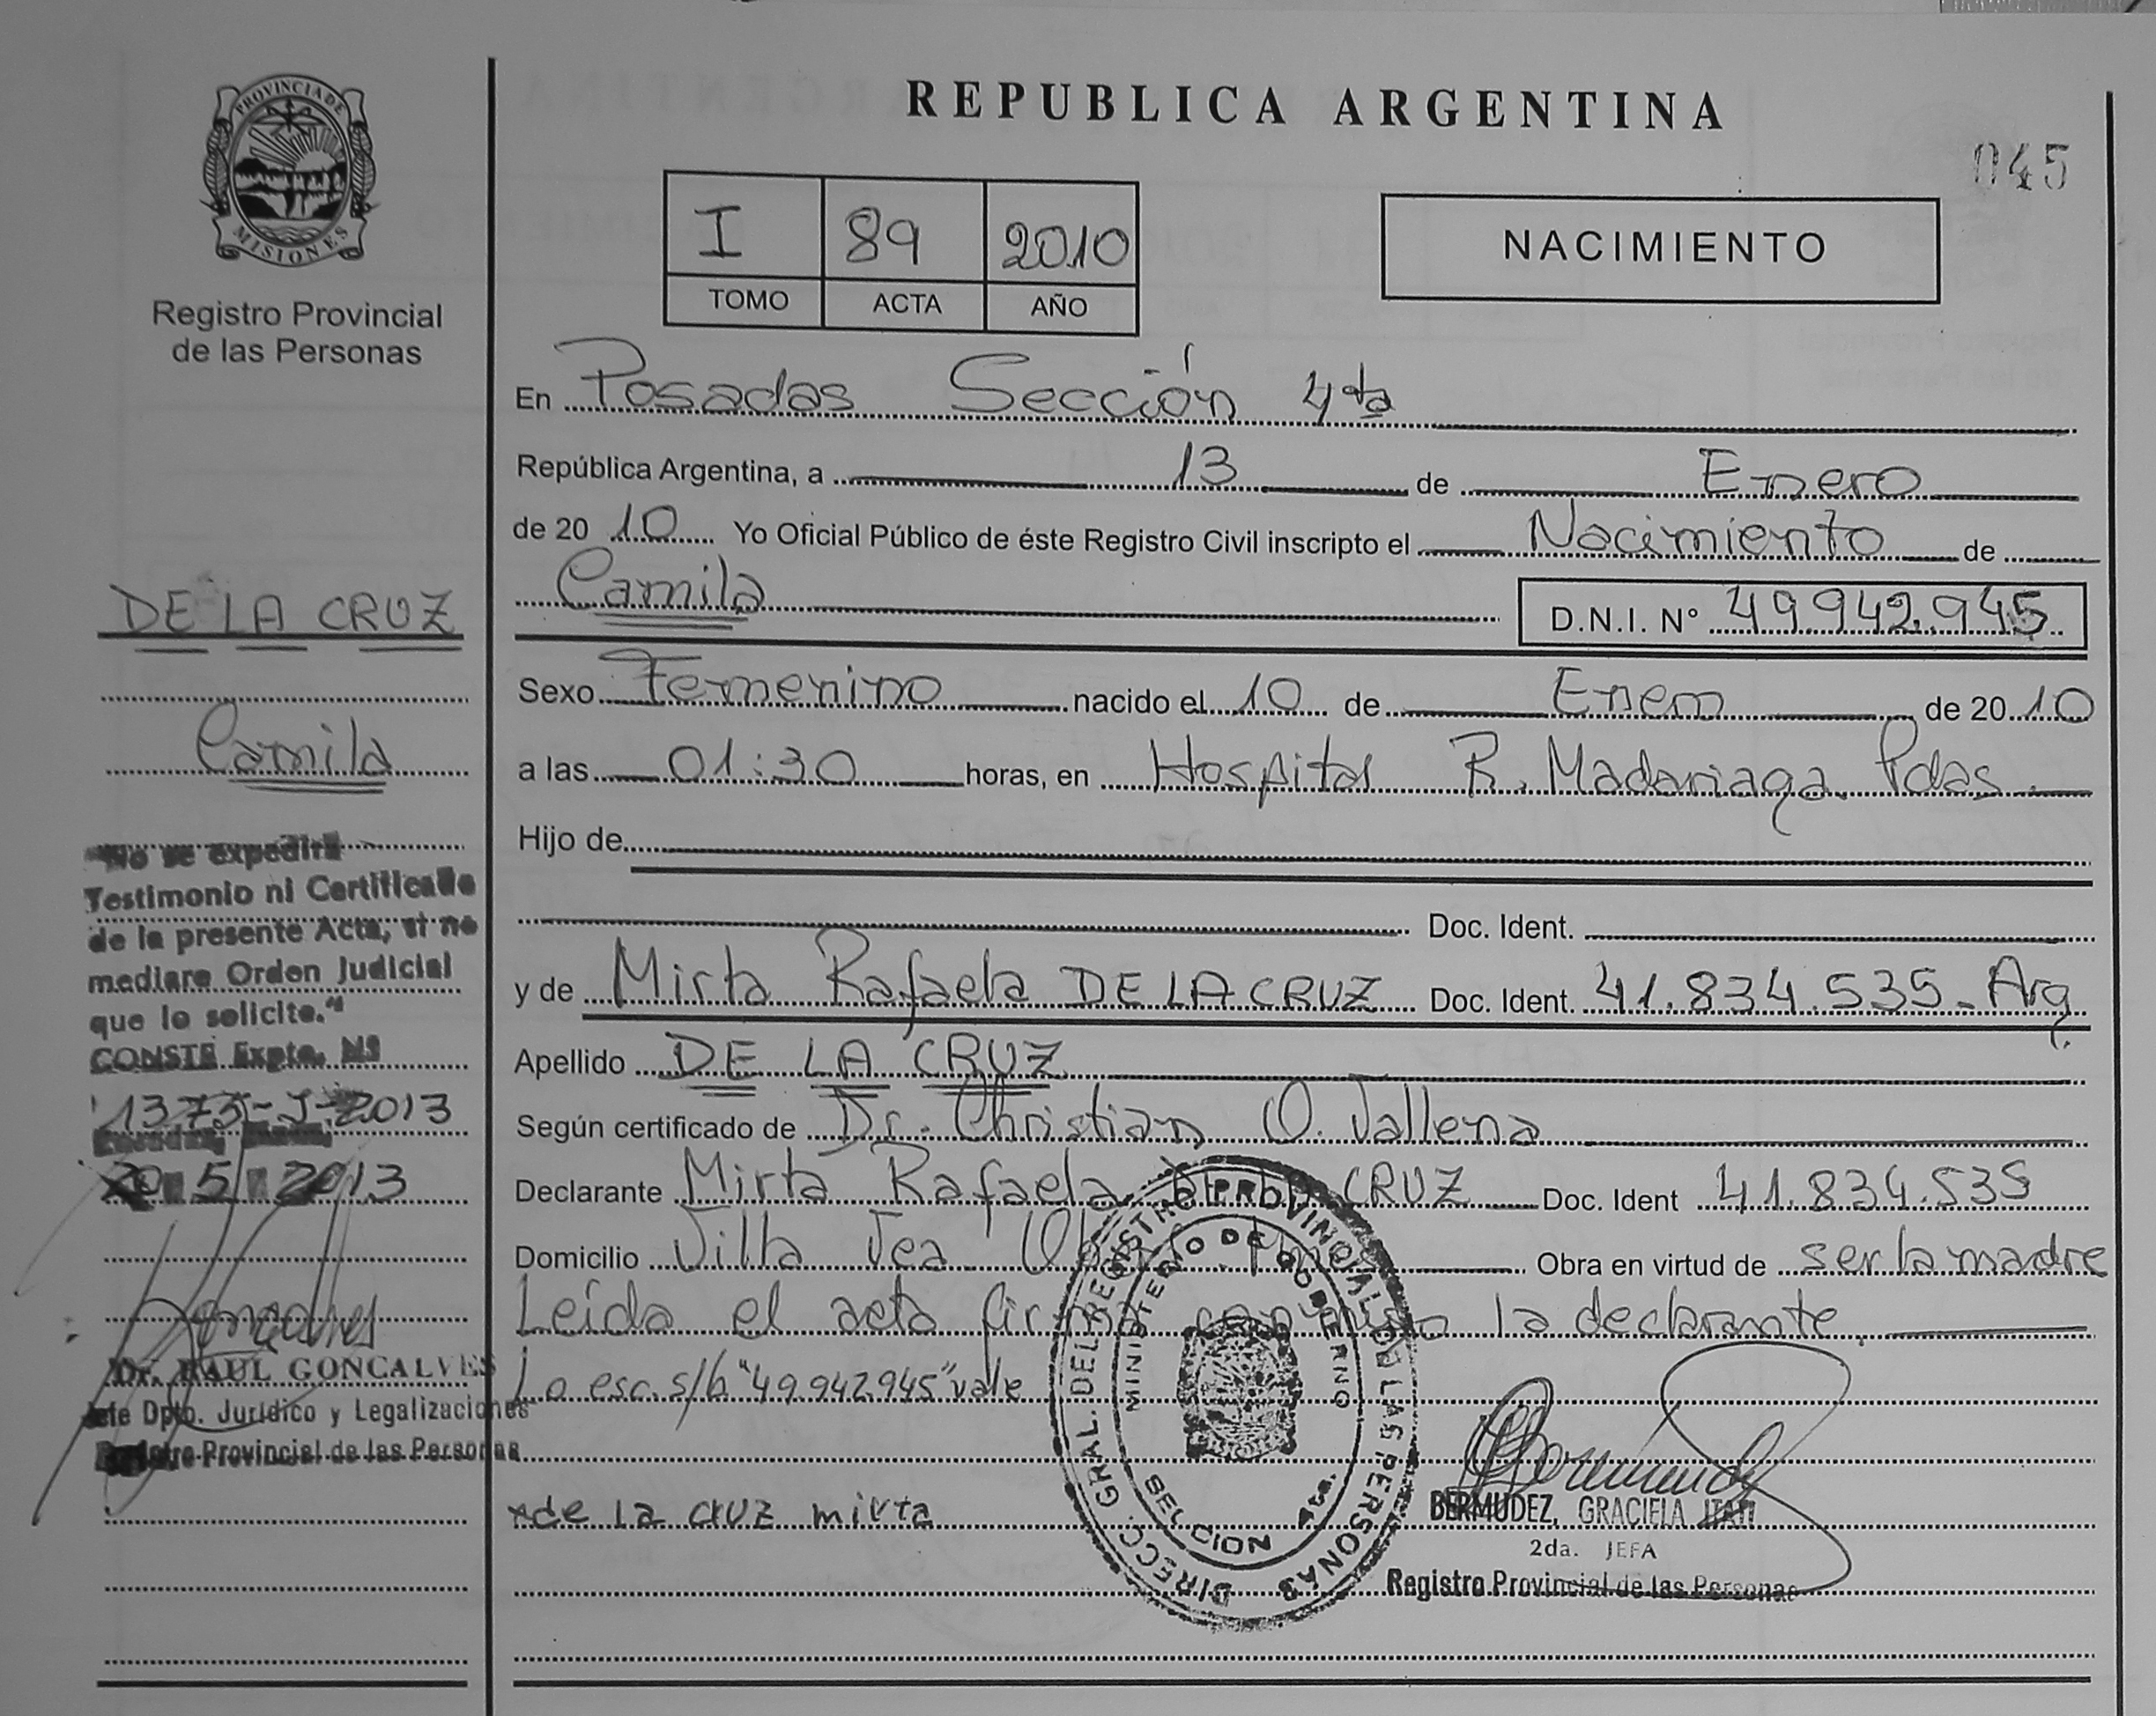 REPUBLICA ARGENTINA
045
PROVINCIA DE
MISIONES
Registro Provincial
de las Personas
I 89 2010
TOMO ACTA AÑO
NACIMIENTO
En Posadas Sección 4ta
República Argentina, a 13 de Enero
de 20 10 Yo Oficial Público de éste Registro Civil inscripto el Nacimiento de
Camila D.N.I. Nº 49.942.945
Sexo Femenino nacido el 10 de Enero de 20 10
a las 01:30 horas, en Hospital R. Madariaga Pdas
Hijo de
Doc. Ident.
y de Mirta Rafaela DE LA CRUZ Doc. Ident. 41.834.535- Arg.
Apellido DE LA CRUZ
Según certificado de Dr. Christian O. Vallena
Declarante Mirta Rafaela CRUZ Doc. Ident 41.834.535
Domicilio Villa Obra en virtud de ser la madre
Leída el acta la declarante.
Lo esc. s/b "49.942.945" vale
de la cruz mirta
DIRECC. GRAL. DEL REGISTRO PROVINCIAL DE LAS PERSONAS
MINISTERIO DE GOBIERNO
SECCION 4ta.
BERMUDEZ, GRACIELA ITATI
2da. JEFA
Registro Provincial de las Personas
DE LA CRUZ
Camila
"No se expedirá
Testimonio ni Certificado
de la presente Acta, si no
mediare Orden Judicial
que lo solicite."
CONSTE Expte. Nº
1375-J-2013
Posadas,
5 2013
Dr. RAUL GONCALVES
Jefe Dpto. Jurídico y Legalizaciones
Registro Provincial de las Personas